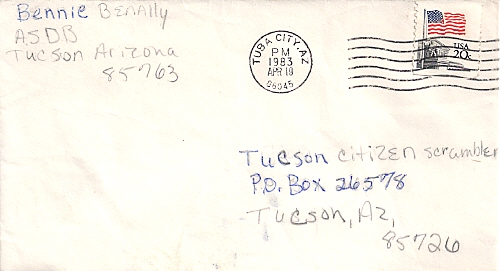 Bennie Benally
ASDB
Tucson Arizona
85763
TUBA CITY, AZ
PM
1983
APR 18
86045
USA
20c
Tucson citizen scrambler
P.O. Box 26578
Tucson, Az,
85726